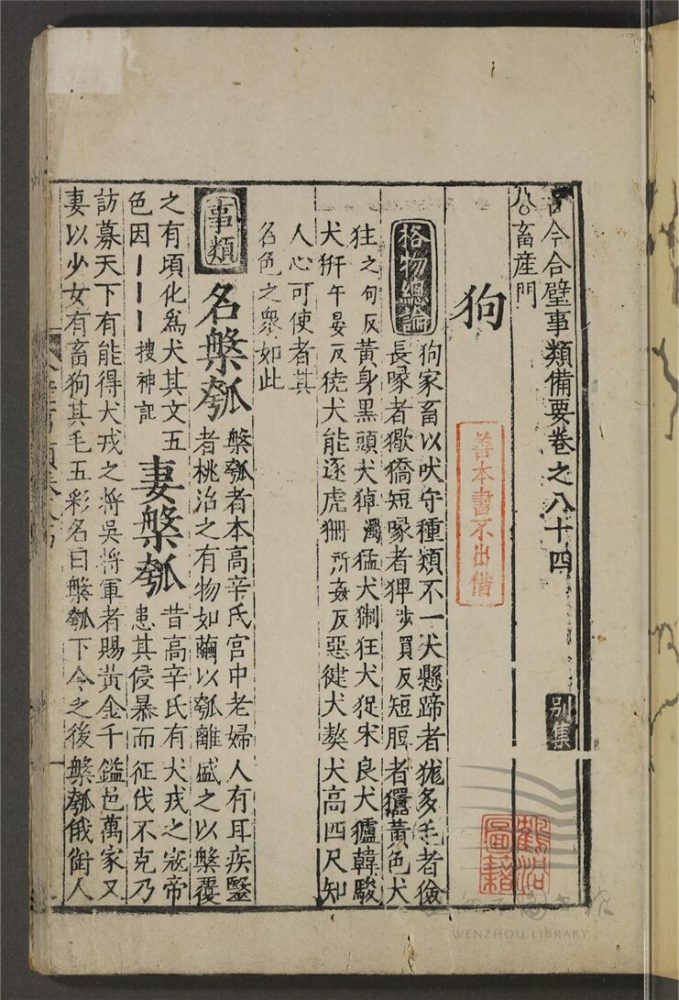 古今合璧事類備要卷之八十四 別集
畜産門
狗
善本書不出借
格物總論
狗家畜以吠守種類不一犬懸蹄者㹞多毛者獫
長喙者獥獢短喙者猈步買反短脰者黃色犬
往之句反黃身黑頭犬濁猛犬猘狂犬捉宋良犬獹韓駿
犬犴午晏反獟犬能逐虎狦所姦反惡犍犬獒犬高四尺知
人心可使者其
名色之衆如此
事類 名槃瓠
槃瓠者本高辛氏宮中老婦人有耳疾毉
者桃治之有物如繭以瓠離盛之以槃覆
之有頃化爲犬其文五
色因丨丨丨搜神記
妻槃瓠
昔高辛氏有犬戎之寇帝
患其侵暴而征伐不克乃
訪募天下有能得犬戎之將吳將軍者賜黃金千鎰邑萬家又
妻以少女有畜狗其毛五彩名曰槃瓠下令之後槃瓠俄銜人
圖籍
WENZHOU LIBRARY